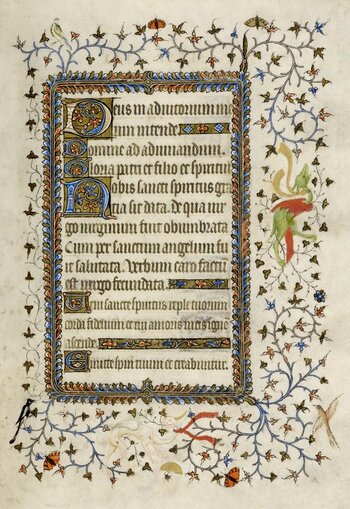 Deus in adiutorium m
eum intende
Domine ad adiuuandum
Gloria patri et filio et spiritui
Nobis sancti spiritus gra
tia sit data. De qua uir
go uirginum fuit obumbrata
Cum per sanctum angelum fu
it salutata. Verbum caro factū
est uirgo fecundata.
Veni sancte spiritus reple tuorum
corda fidelium et tui amoris
Emitte et creabuntur.